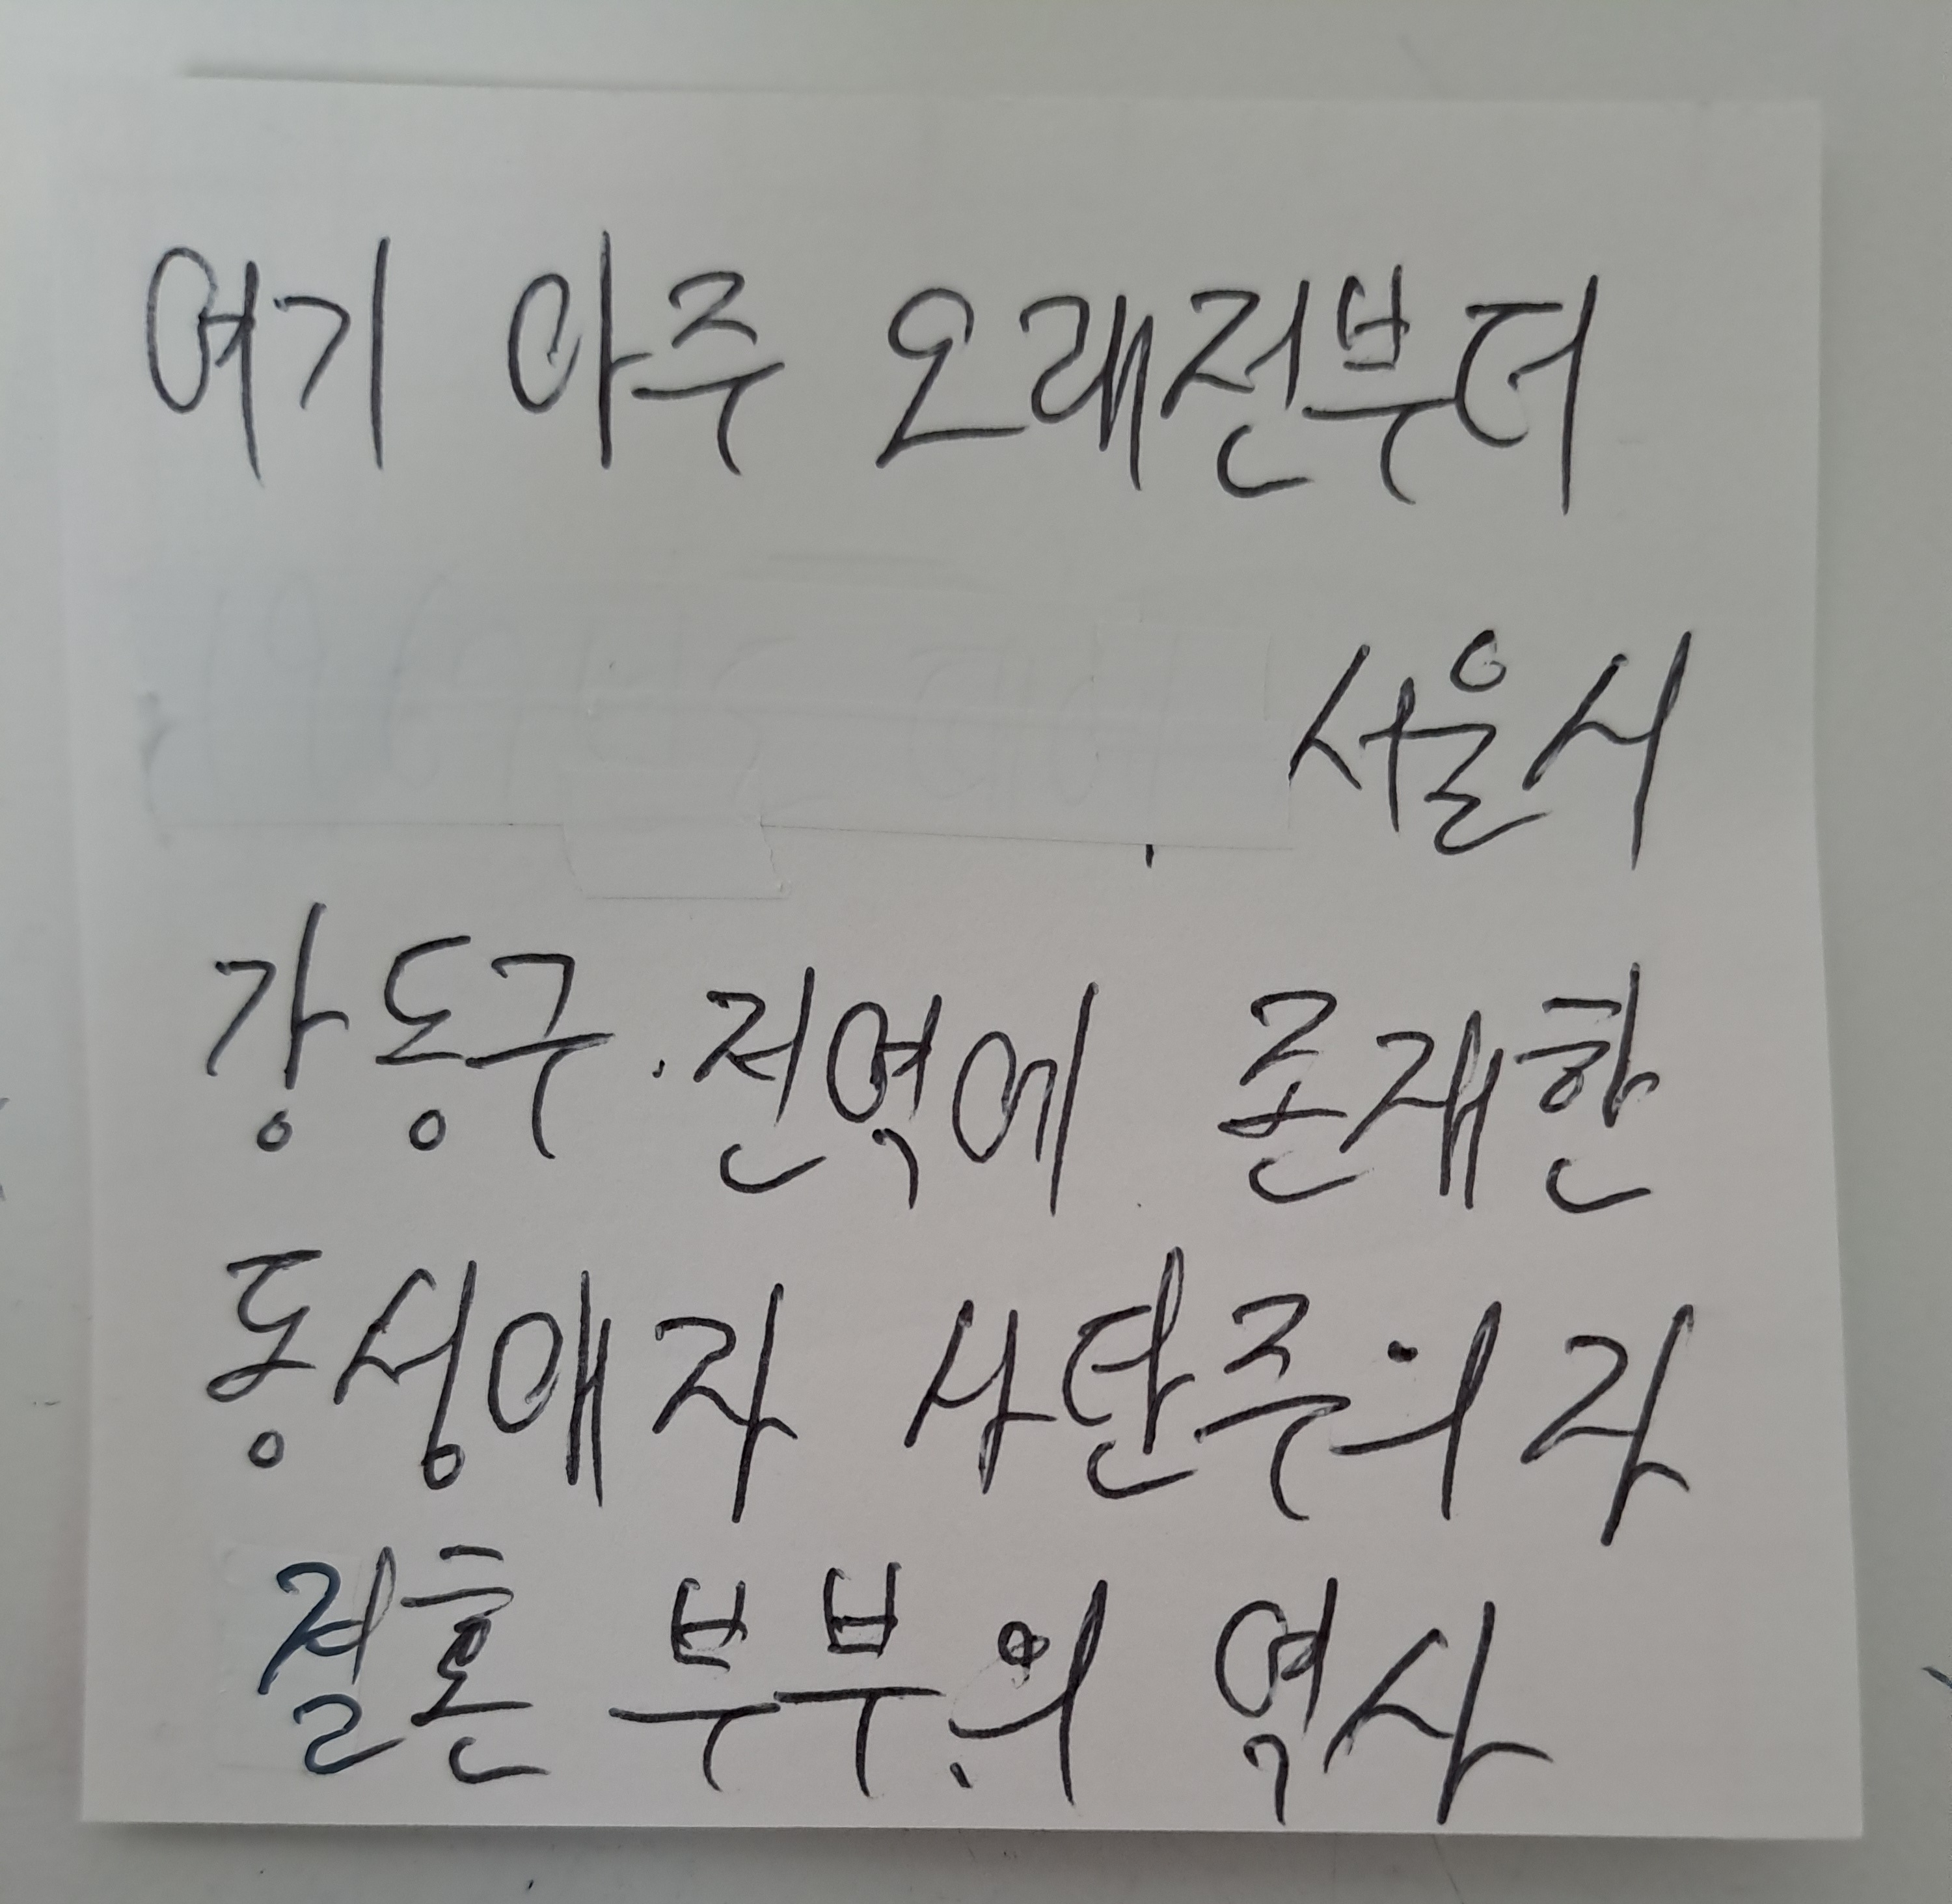 여기 아주 오래전부터
서울시
강동구 전역에 존재한
동성애자 사탄주의자
결혼 부부의 역사